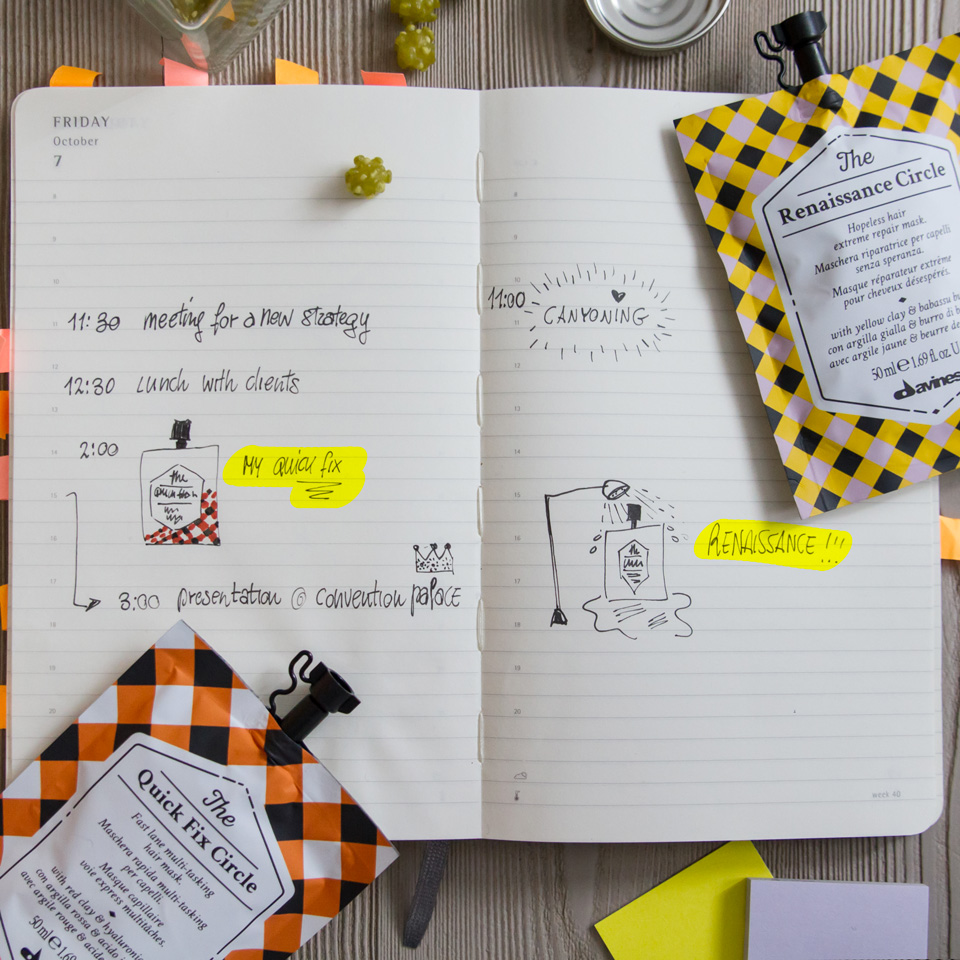 FRIDAY
October
7
8
9
10
11:30 meeting for a new strategy
11
12
12:30 Lunch with clients
13
2:00
14
MY QUICK FIX
the
quick fix
15
16
17
3:00 presentation @ convention palace
18
19
20
8
9
10
11:00
CANYONING
11
12
13
14
15
16
RENAISSANCE !!!
the
17
18
19
20
week 40
The
Renaissance Circle
Hopeless hair
extreme repair mask.
Maschera riparatrice per capelli
senza speranza.
Masque réparateur extrême
pour cheveux désespérés.
with yellow clay & babassu bu
con argilla gialla & burro di b
avec argile jaune & beurre de
50 ml e 1.69 fl. oz U
davines
The
Quick Fix Circle
Fast lane multi-tasking
hair mask.
Maschera rapida multi-tasking
per capelli.
Masque capillaire
voie express multitâches.
with red clay & hyaluronic
con argilla rossa & acido i
avec argile rouge & acide
50 ml e 1.69
davi